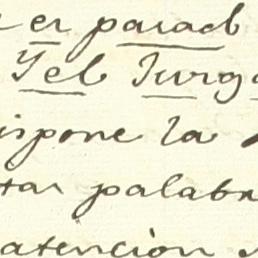 er parad
Tel Turg
ispone la
tar palabr
atención